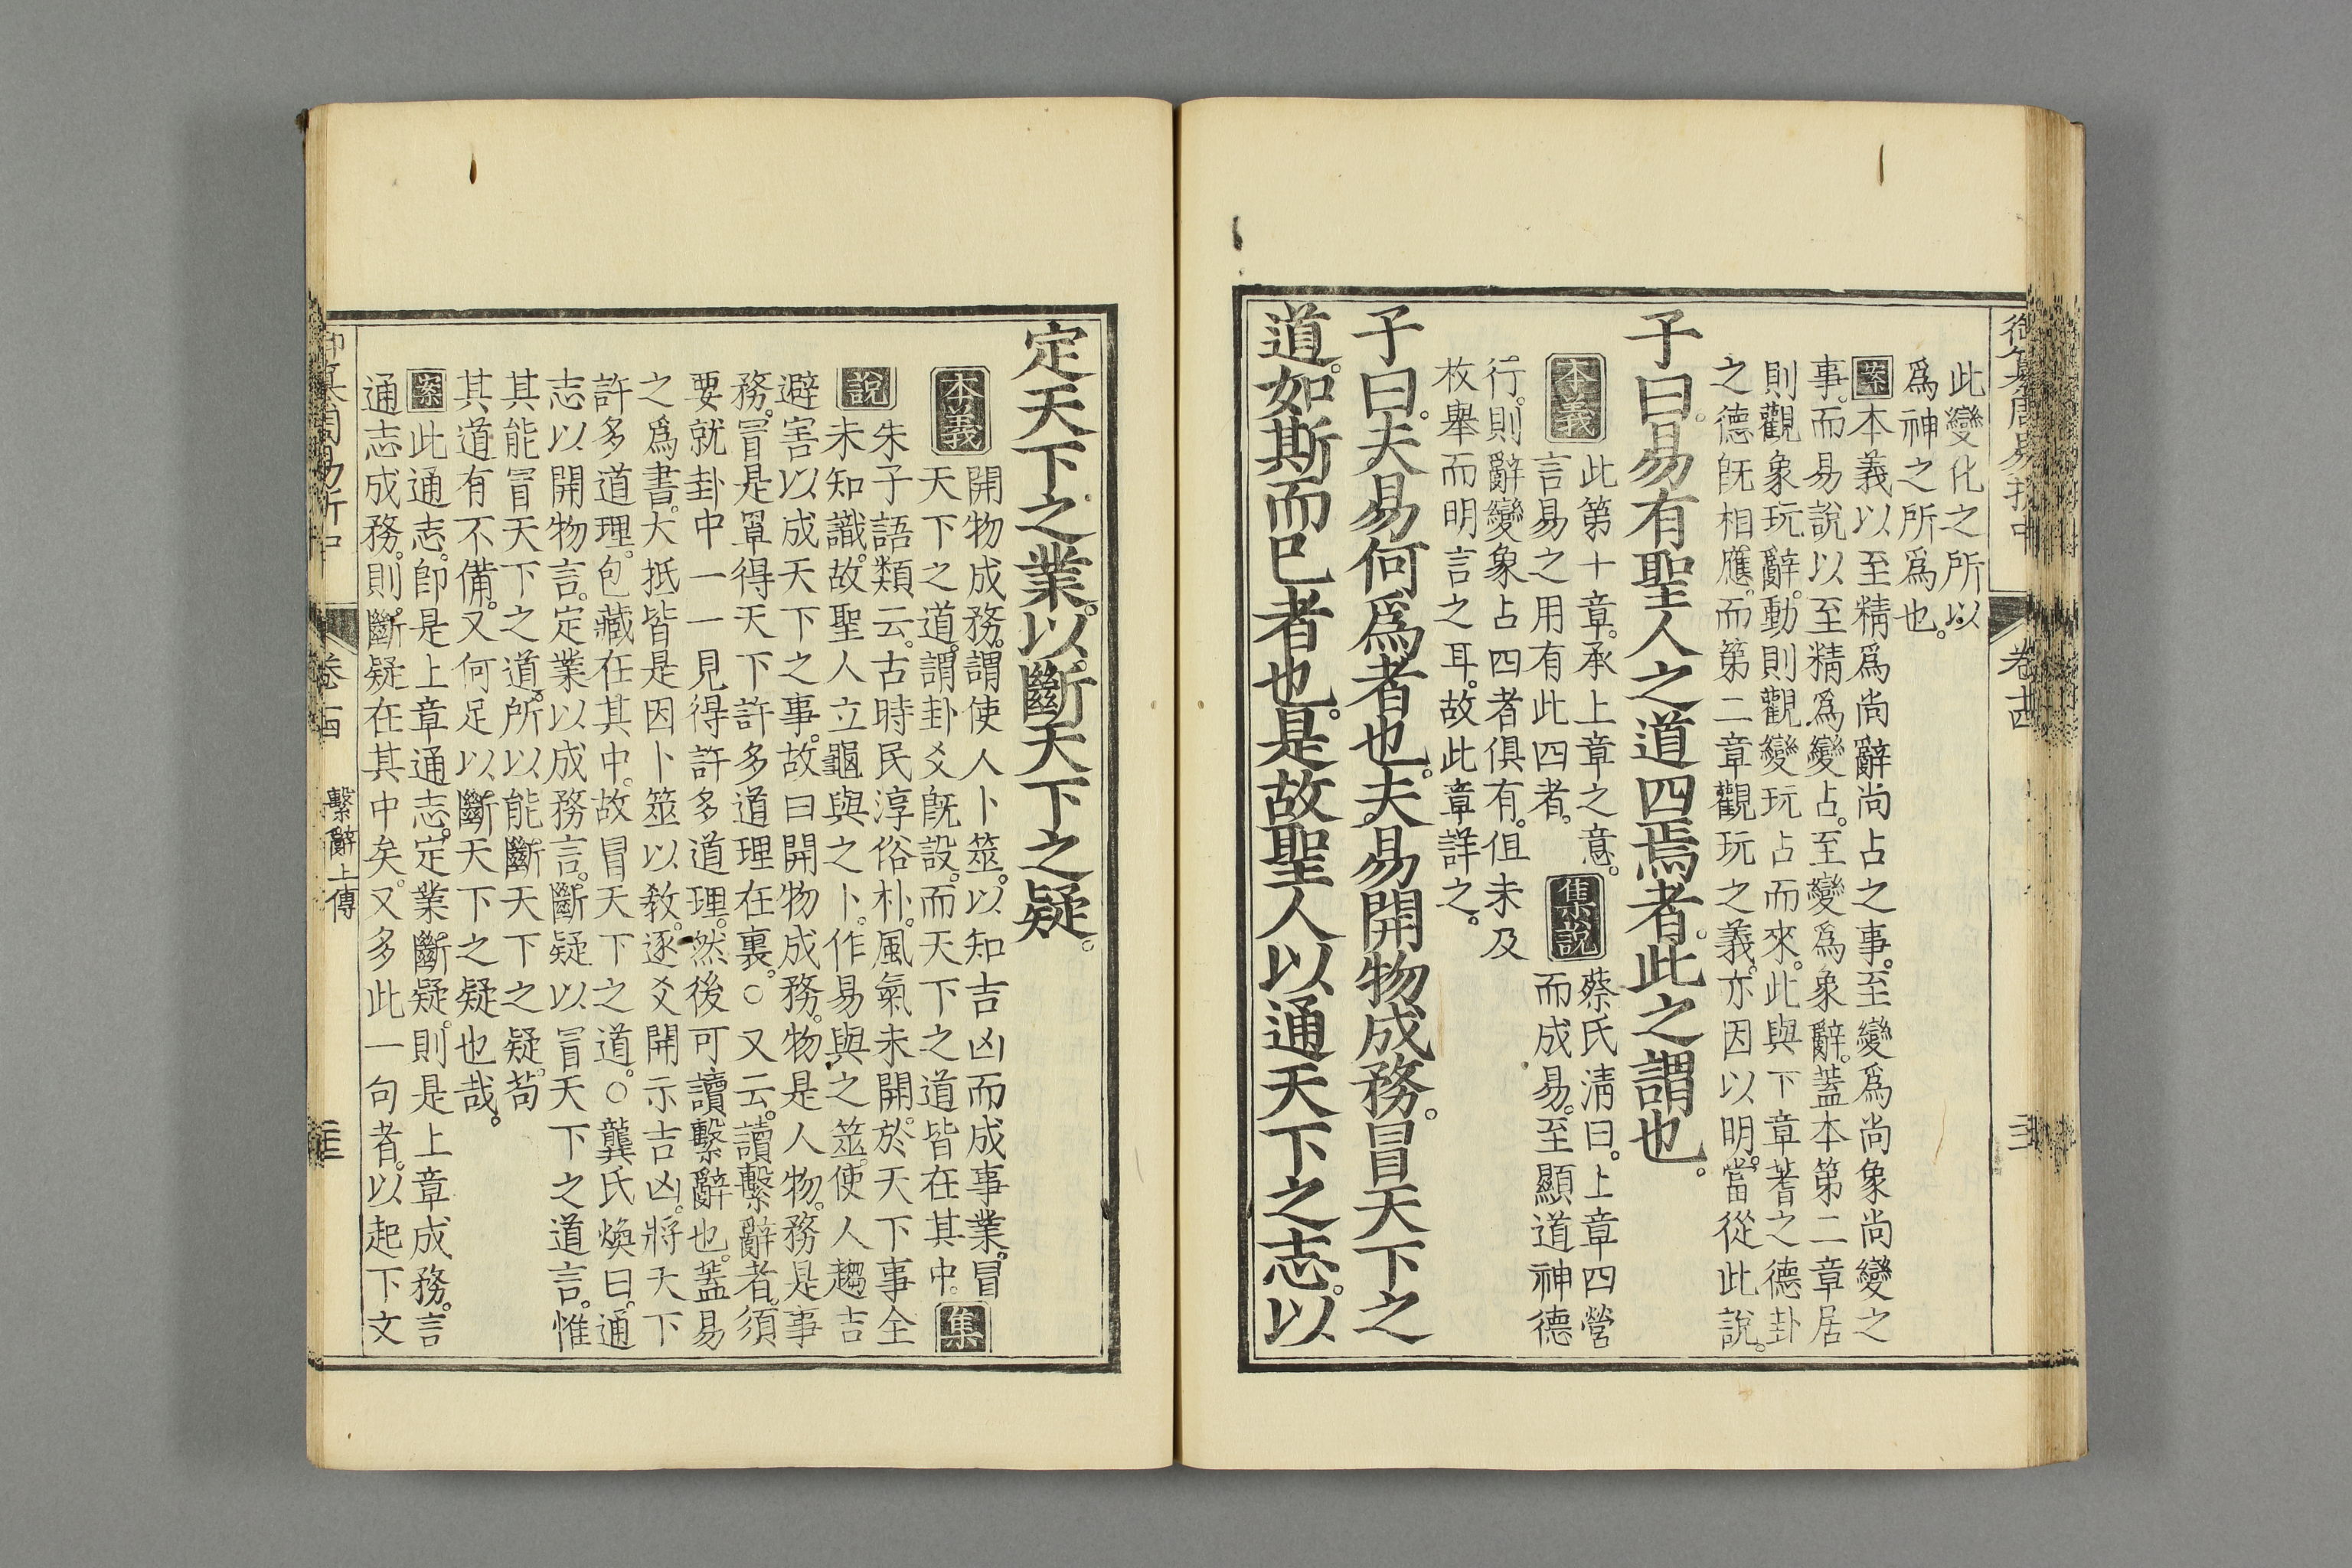 御纂周易折中
卷十四
此變化之所以
爲神之所爲也。
案本義以至精爲尚辭尚占之事。至變爲尚象尚變之
事。而易說以至精爲變占。至變爲象辭。蓋本第二章居
則觀象玩辭。動則觀變玩占而來。此與下章蓍之德卦
之德旣相應。而第二章觀玩之義。亦因以明。當從此說。
子曰。易有聖人之道四焉者。此之謂也。
本義
此第十章。承上章之意。
言易之用有此四者。
集說
蔡氏淸曰。上章四營
而成易。至顯道神德
行。則辭變象占四者俱有。但未及
枚舉而明言之耳。故此章詳之。
子曰。夫易何爲者也。夫易開物成務。冒天下之
道。如斯而已者也。是故聖人以通天下之志。以
定天下之業。以斷天下之疑。
本義
開物成務。謂使人卜筮。以知吉凶而成事業。冒
天下之道。謂卦爻旣設。而天下之道皆在其中。集
說
朱子語類云。古時民淳俗朴。風氣未開。於天下事全
未知識。故聖人立龜與之卜。作易與之筮。使人趨吉
避害以成天下之事。故曰開物成務。物是人物。務是事
務。冒是罩得天下許多道理在裏。○又云。讀繫辭者。須
要就卦中一一見得許多道理。然後可讀繫辭也。蓋易
之爲書。大抵皆是因卜筮以教。逐爻開示吉凶。將天下
許多道理。包藏在其中。故冒天下之道。○龔氏煥曰。通
志以開物言。定業以成務言。斷疑以冒天下之道言。惟
其能冒天下之道。所以能斷天下之疑。苟
其道有不備。又何足以斷天下之疑也哉。
案此通志。卽是上章通志。定業斷疑。則是上章成務。言
通志成務。則斷疑在其中矣。又多此一句者。以起下文
卷十四
繫辭上傳